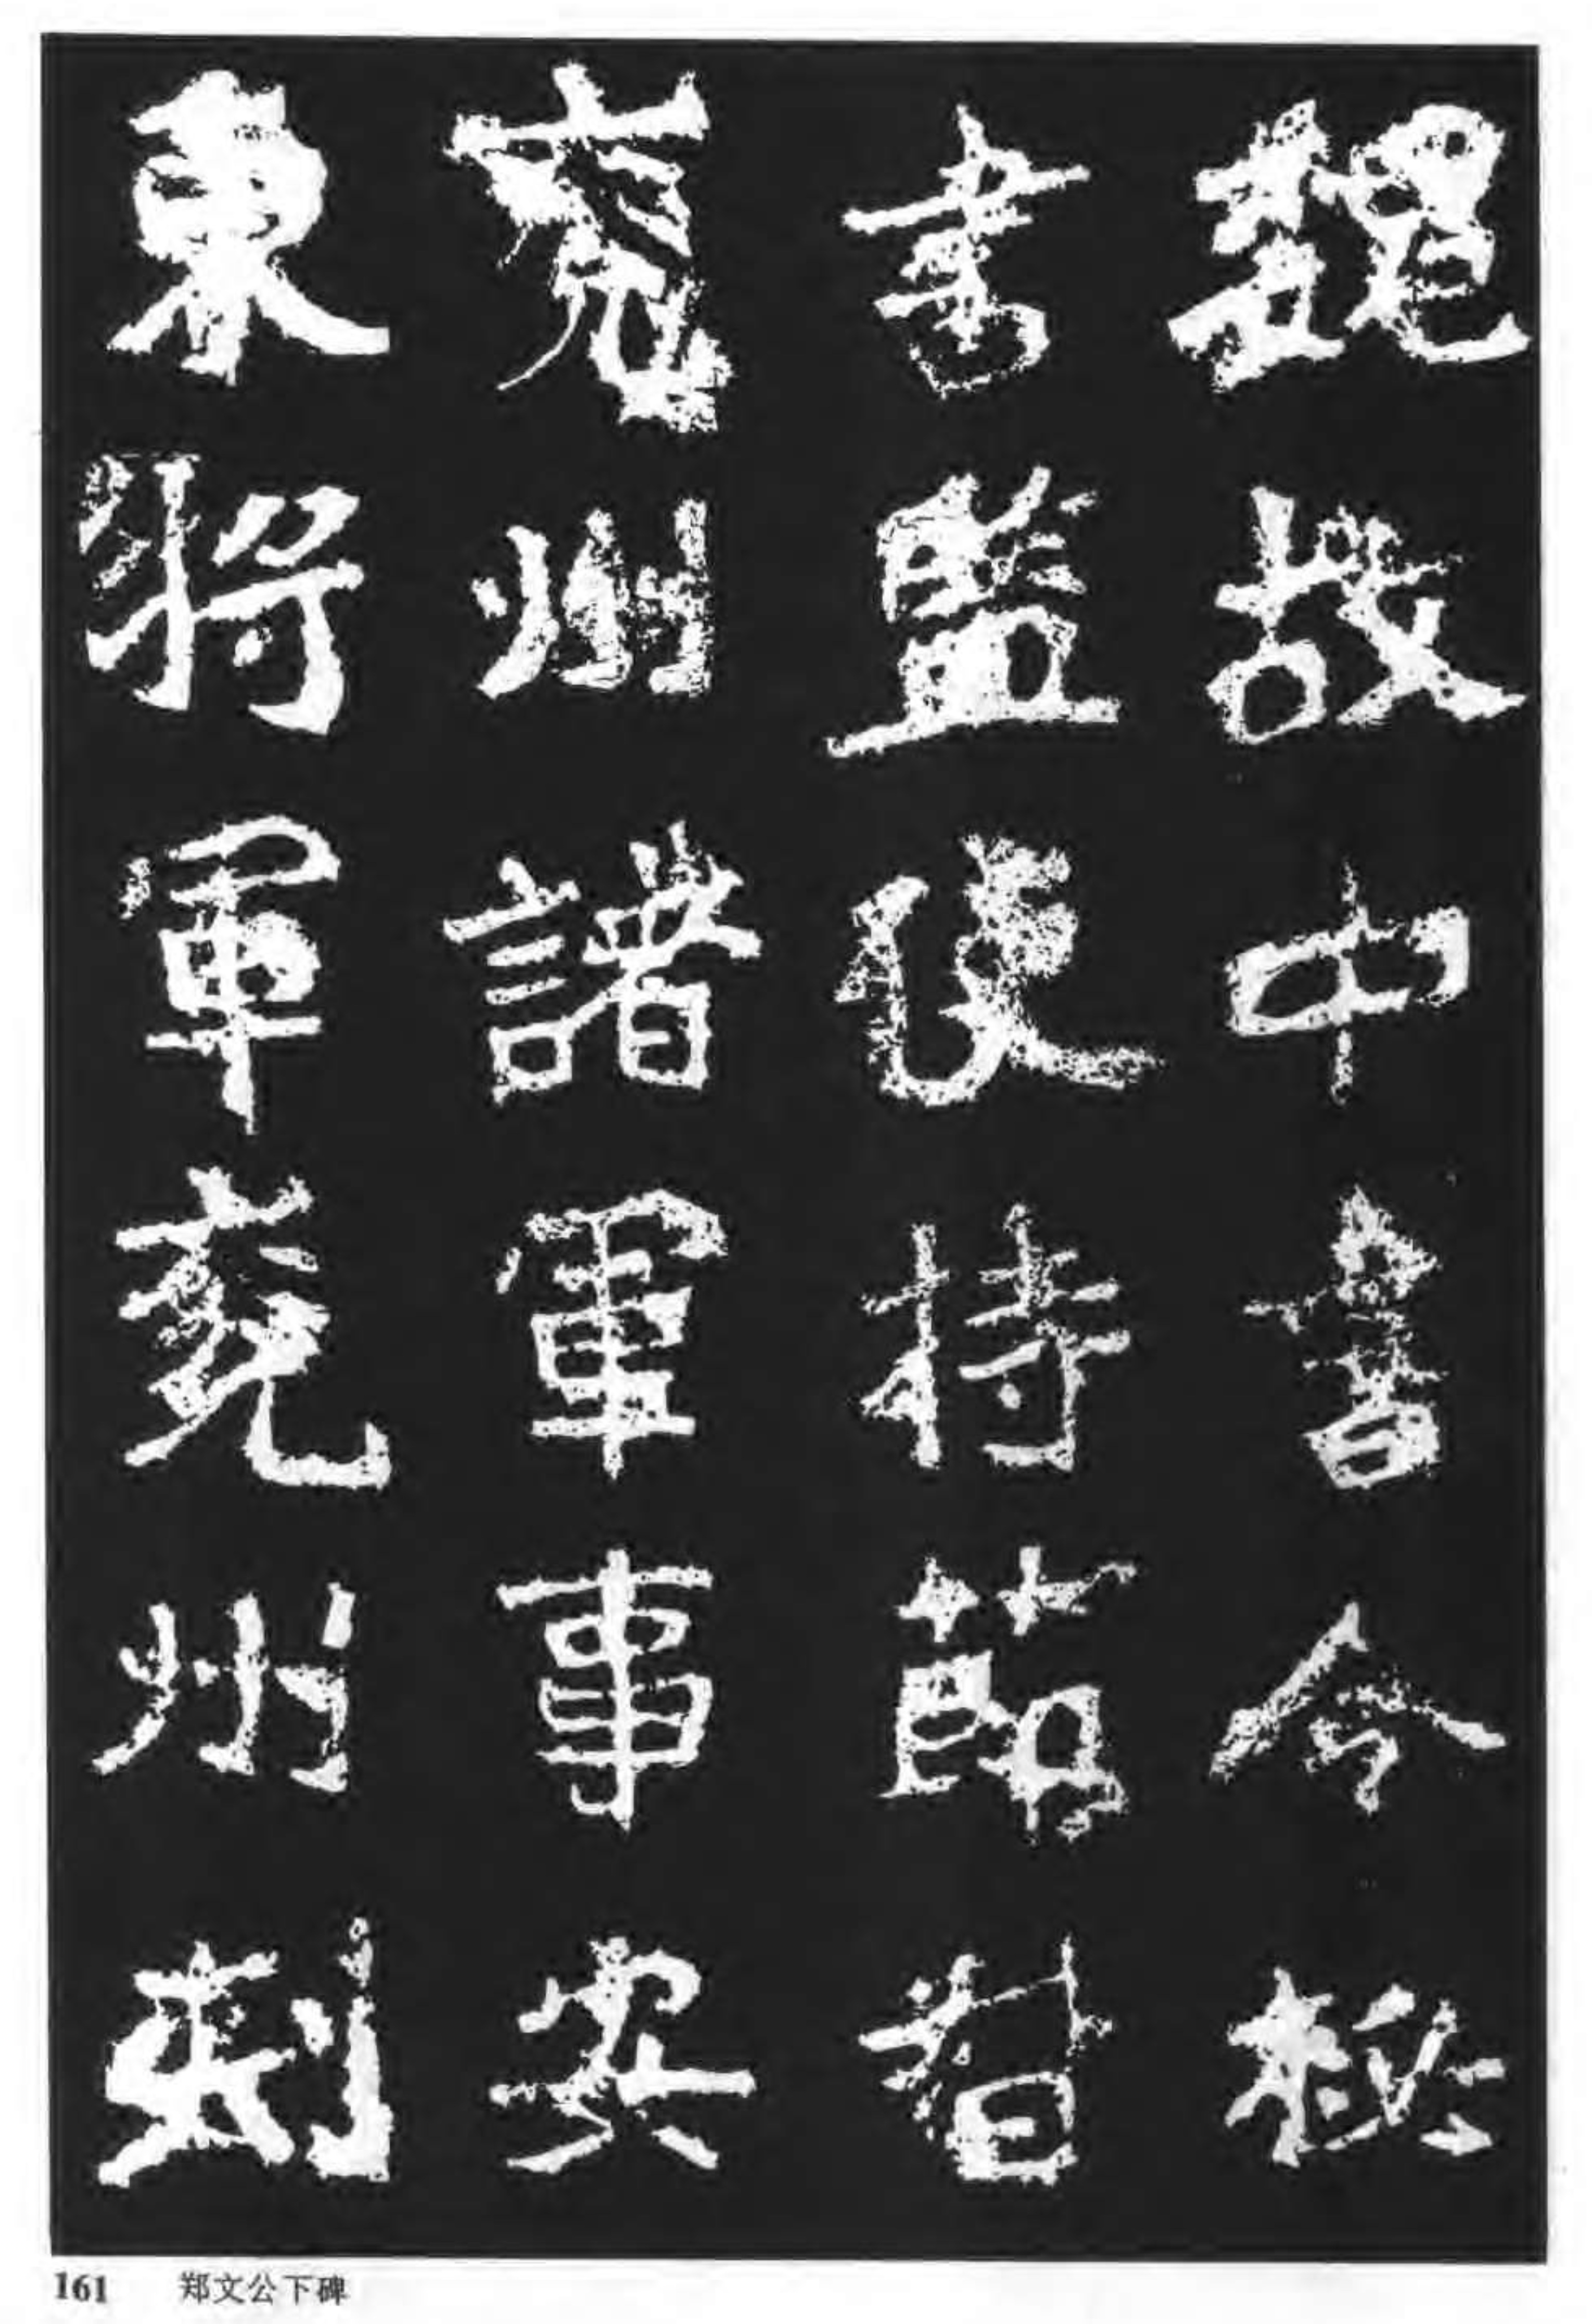 魏故中書令秘
書監使持節督
兗州諸軍事安
東將軍兗州刺
161 郑文公下碑